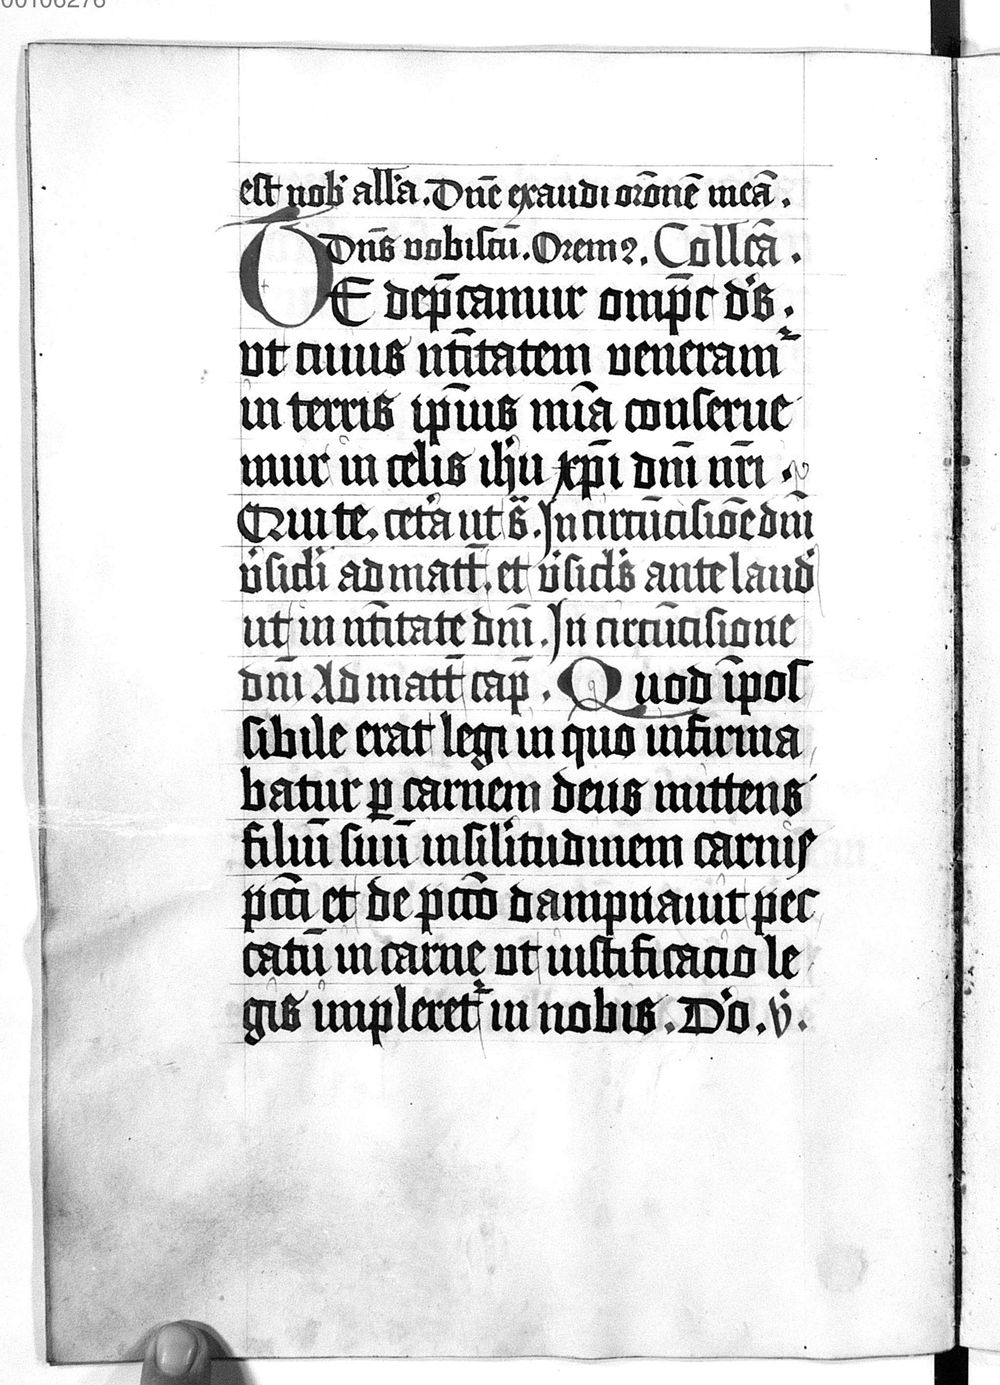 00106276
est nob' all'a. Dn̄e exaudi or̄onē meā.
Dn̄s vobiscū. Orem9. Collc̄a.
TE dep̄camur omp̄c d's.
vt cuius nt̄itatem veneram²
in terris ip̄ius mīa conserue
mur in celis ih'u xp̄i dnī nr̄i.
Qui te. cet'a ut s̄. In circūcisiōe dnī
v̓sicl'i ad matt̄. et v̓sicl's ante laud'
ut in nt̄itate dnī. In circūcisione
dnī Ad matt̄ cap̄. Quod īpos
sibile erat legi in quo infirma
batur ꝑ carnem deus mittens
filiū suū in sil'itudinem carnis
pcc̄i et de pcc̄o dampnauit pec
catū in carne vt iustificacio le
gis impleret² in nobis. D'o. v̓.